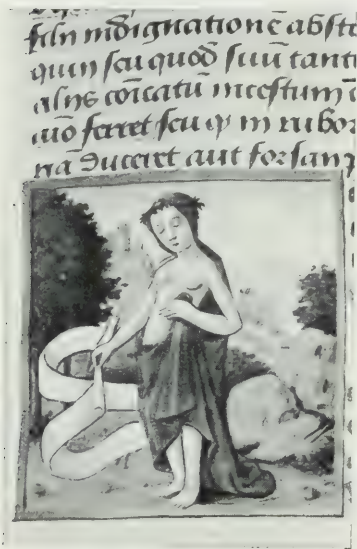 filii indignationē abste
quin seu quod suū tanti
aliis cōicatū incestum
aīo ferret seu ꝙ in rubor
na duceret aut forsan